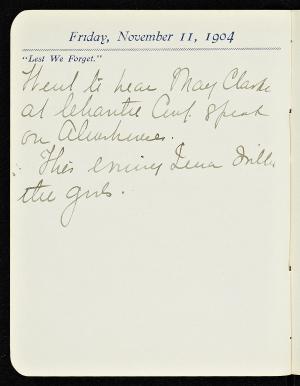 Friday, November 11, 1904
"Lest We Forget."
Went to hear May Clarke
at Charitie Conf. speak
on Almshouses.
This evening Lena drills
the girls.